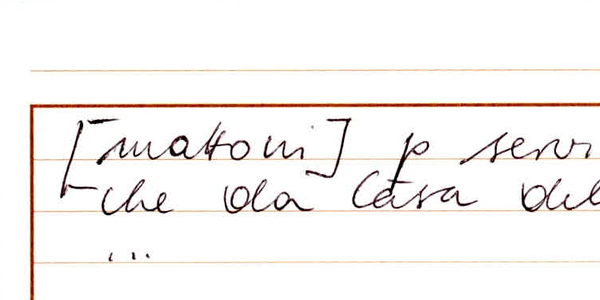 [mattoni] p servi
che da Casa del
...